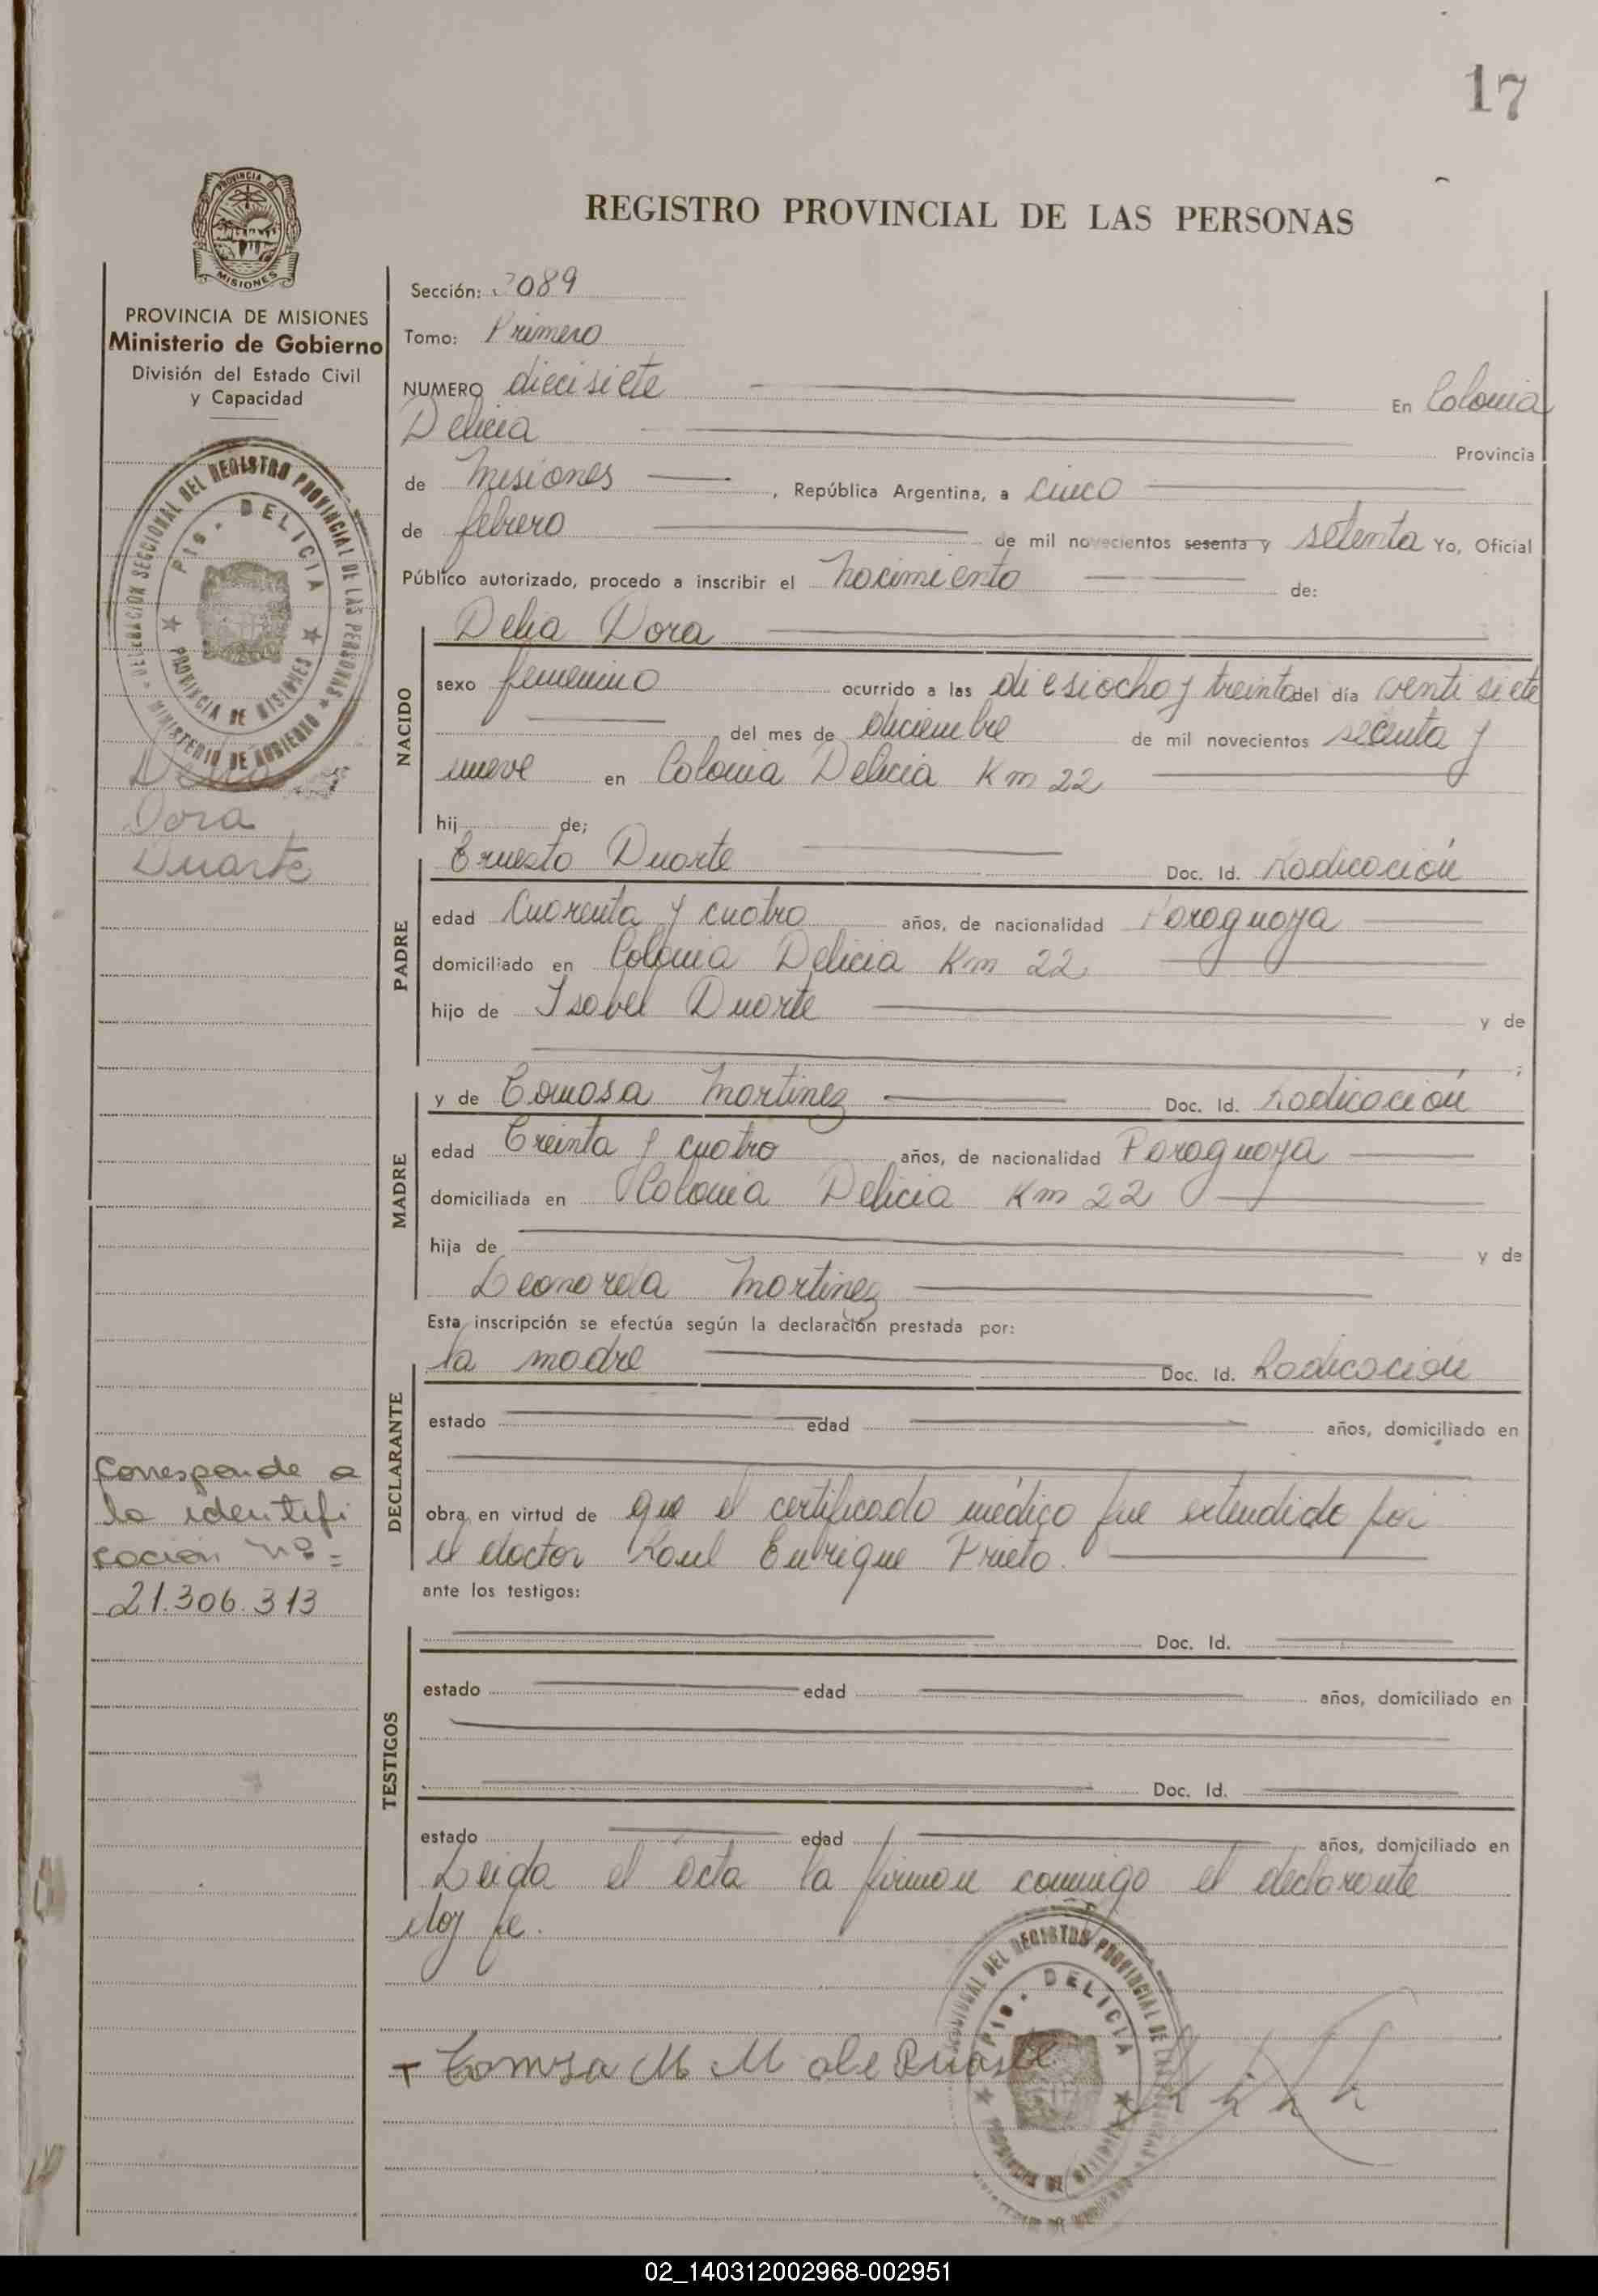 17
REGISTRO PROVINCIAL DE LAS PERSONAS
PROVINCIA DE
MISIONES
PROVINCIA DE MISIONES
Ministerio de Gobierno
División del Estado Civil
y Capacidad
DELEGACION SECCIONAL DEL REGISTRO PROVINCIAL DE LAS PERSONAS
MINISTERIO DE GOBIERNO
Pto. DELICIA
PROVINCIA DE MISIONES
Delia
Dora
Duarte
Corresponde a
la identifi
cación nº =
21.306.313
Sección: 089
Tomo: Primero
NUMERO diecisiete En Colonia
Delicia Provincia
de Misiones , República Argentina, a cinco
de febrero de mil novecientos sesenta y setenta Yo, Oficial
Público autorizado, procedo a inscribir el nacimiento de:
NACIDO
Delia Dora
sexo femenino ocurrido a las diesiocho y treinta del día venti siete
del mes de diciembre de mil novecientos secenta y
nueve en Colonia Delicia Km 22
hij de;
PADRE
Ernesto Duarte Doc. Id. Radicación
edad Cuarenta y cuatro años, de nacionalidad Paraguaya
domiciliado en Colonia Delicia Km 22
hijo de Isabel Duarte y de
;
MADRE
y de Tomasa Martinez Doc. Id. Radicación
edad Treinta y cuatro años, de nacionalidad Paraguaya
domiciliada en Colonia Delicia Km 22
hija de y de
Martinez
Esta inscripción se efectúa según la declaración prestada por:
DECLARANTE
la madre Doc. Id. Radicación
estado edad años, domiciliado en
obra en virtud de que el certificado médico fue extendido por
el doctor Raul Enrique Prieto.
ante los testigos:
TESTIGOS
Doc. Id.
estado edad años, domiciliado en
Doc. Id.
estado edad años, domiciliado en
Leida el acta la firman conmigo el declarante
doy fe.
Tomasa M M de Duarte
Pto. DELICIA
02_140312002968-002951